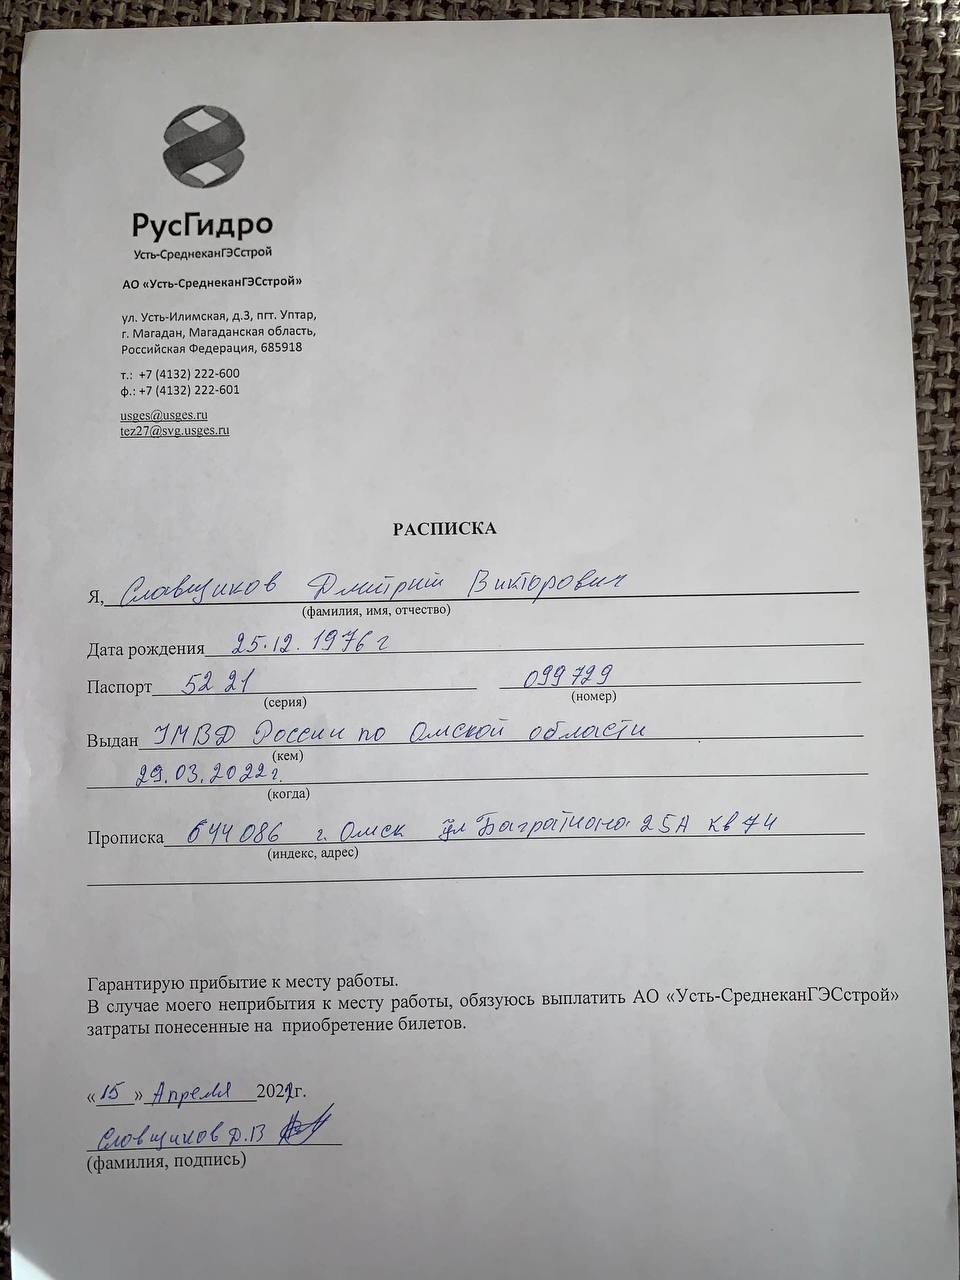 РусГидро
Усть-СреднеканГЭСстрой
АО «Усть-СреднеканГЭСстрой»
ул. Усть-Илимская, д.3, пгт. Уптар,
г. Магадан, Магаданская область,
Российская Федерация, 685918
т.: +7 (4132) 222-600
ф.: +7 (4132) 222-601
usges@usges.ru
tez27@svg.usges.ru
РАСПИСКА
Я, Славщиков Дмитрий Викторович
(фамилия, имя, отчество)
Дата рождения 25.12.1976 г
Паспорт 52 21 099729
(серия) (номер)
Выдан УМВД России по Омской области
(кем)
29.03.2022 г.
(когда)
Прописка 644086 г. Омск ул Багратиона 25А кв 74
(индекс, адрес)
Гарантирую прибытие к месту работы.
В случае моего неприбытия к месту работы, обязуюсь выплатить АО «Усть-СреднеканГЭСстрой»
затраты понесенные на приобретение билетов.
«15» Апреля 202г.
Славщиков Д.В
(фамилия, подпись)